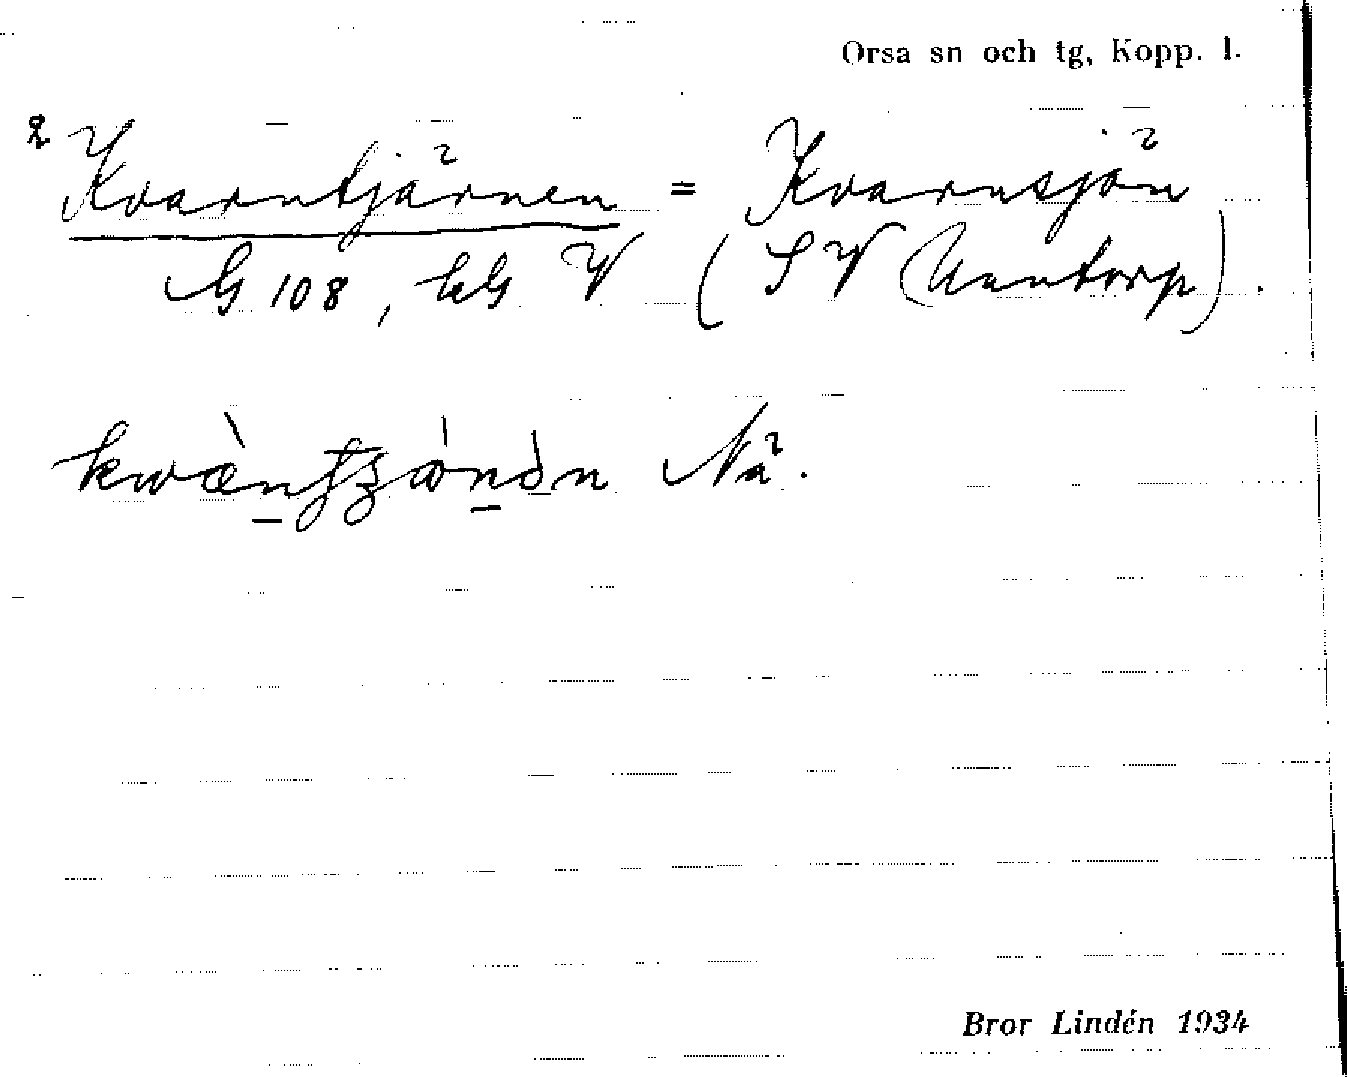 Orsa sn och tg, Kopp. l.
2 Kvarntjärnen = Kvarnsjön
G 108, bG V (SV Untorp).
Nä.
Bror Lindén 1934